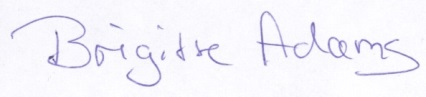 Brigitte Adams